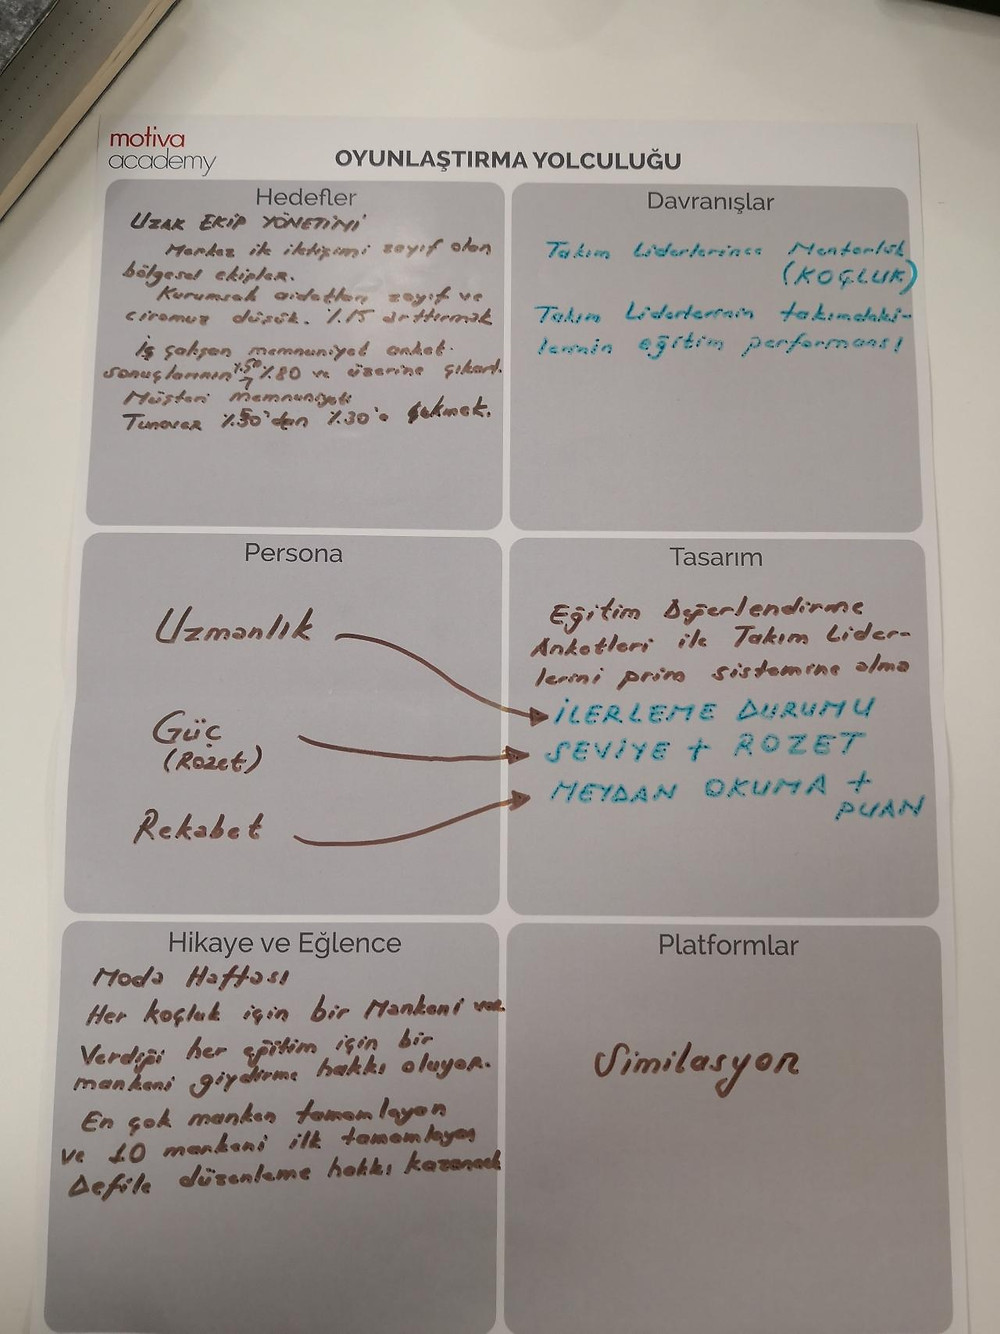 motiva
academy
OYUNLAŞTIRMA YOLCULUĞU
Hedefler
UZAK EKİP YÖNETİMİ
Merkez ile iletişimi zayıf olan
bölgesel ekipler.
Kurumsal aidatları zayıf ve
ciromuz düşük. %15 arttırmak
İş çalışan memnuniyet anket
sonuçlarının %50 %80 ve üzerine çıkart.
Müşteri memnuniyeti
Turnover %50'den %30'a çekmek.
Davranışlar
Takım Liderlerince Mentorluk
(KOÇLUK)
Takım Liderlerinin takımdaki-
lerinin eğitim performansı
Persona
Uzmanlık
Güç
(Rozet)
Rekabet
Tasarım
Eğitim Değerlendirme
Anketleri ile Takım Lider-
lerini prim sistemine alma
İLERLEME DURUMU
SEVİYE + ROZET
MEYDAN OKUMA +
PUAN
Hikaye ve Eğlence
Moda Haftası
Her koçluk için bir Mankeni var
Verdiği her eğitim için bir
mankeni giydirme hakkı oluyor.
En çok manken tamamlayan
ve 10 mankeni ilk tamamlayan
Defile düzenleme hakkı kazanacak
Platformlar
Similasyon